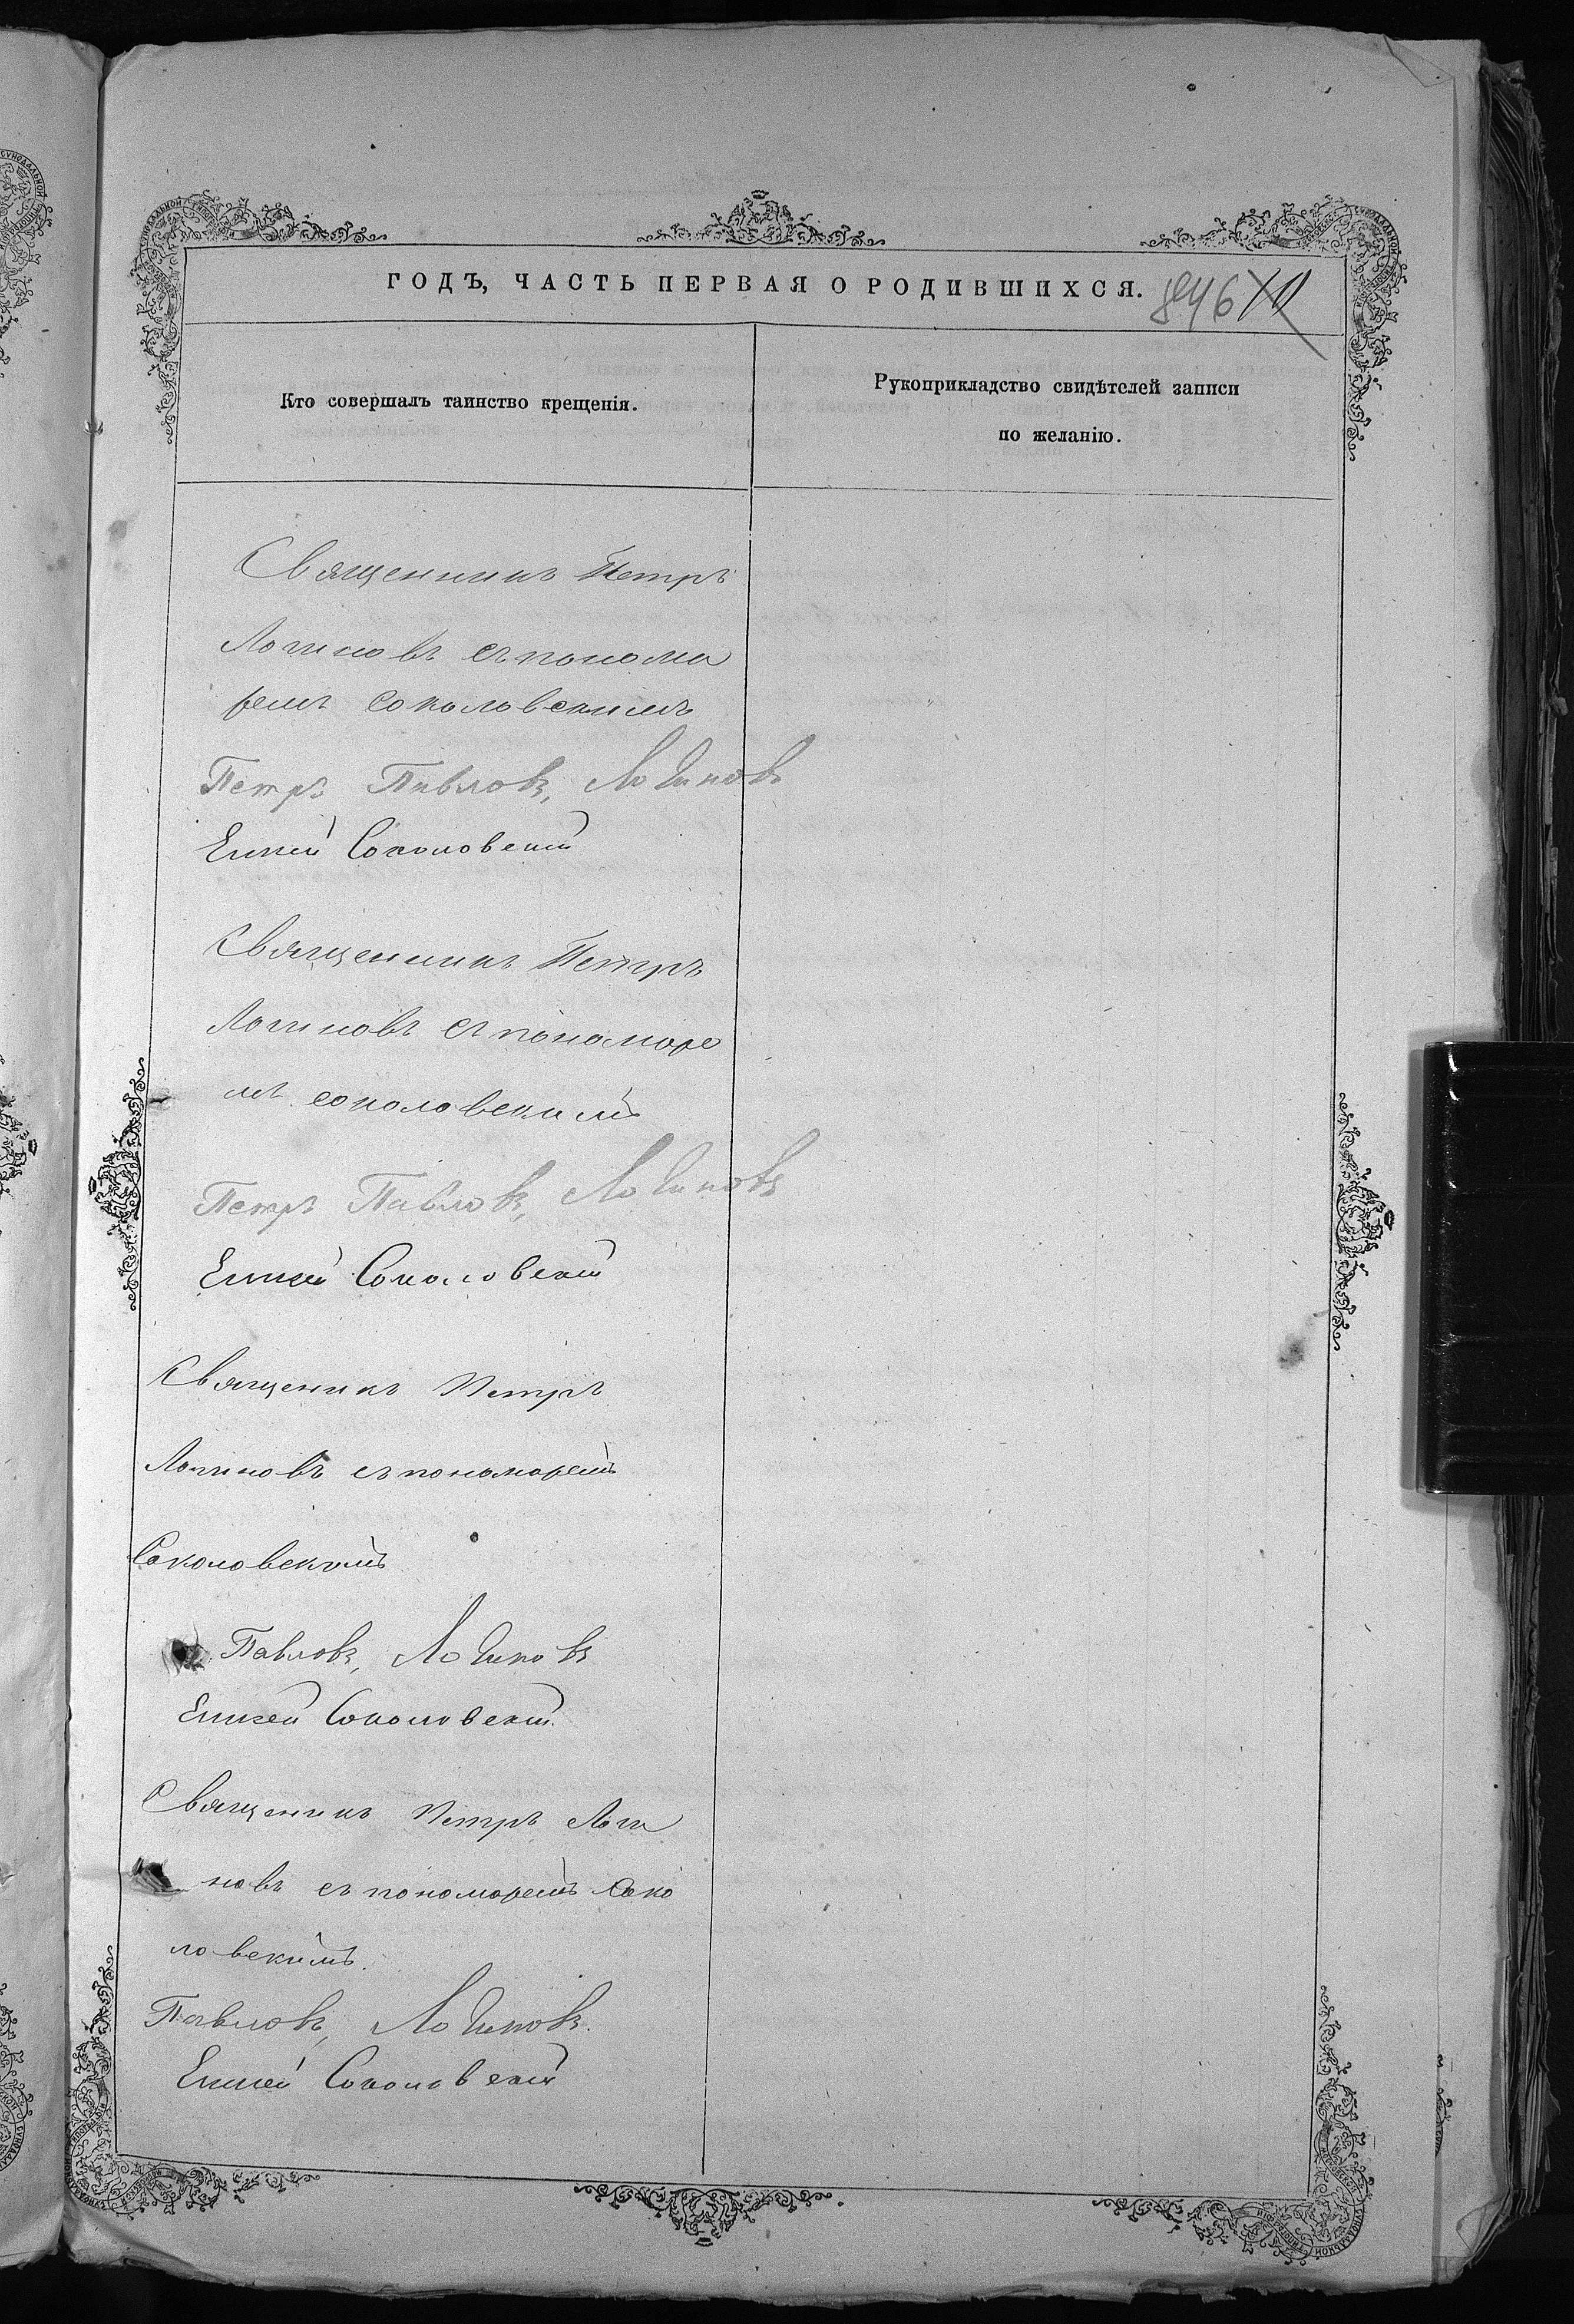 ГОДЪ, ЧАСТЬ ПЕРВАЯ О РОДИВШИХСЯ.
Кто совершалъ таинство крещенія.
Рукоприкладство свидѣтелей записи
по желанію.
Священникъ Петръ
Логиновъ съ понома
ремъ соколовскимъ
Петръ Павловъ, Логиновъ
Елисей Соколовскій
Священникъ Петръ
Логиновъ съ пономоре
мъ соколовскимъ
Петръ Павловъ, Логиновъ
Елисей Соколовскій
Священикъ Петръ
Логиновъ съ пономоремъ
Соколовскимъ
Павловъ, Логиновъ
Елисей Соколовскій
Священикъ Петръ Логи
новъ съ пономоремъ Соко
ловскимъ.
Павловъ, Логиновъ.
Елисей Соколовскій